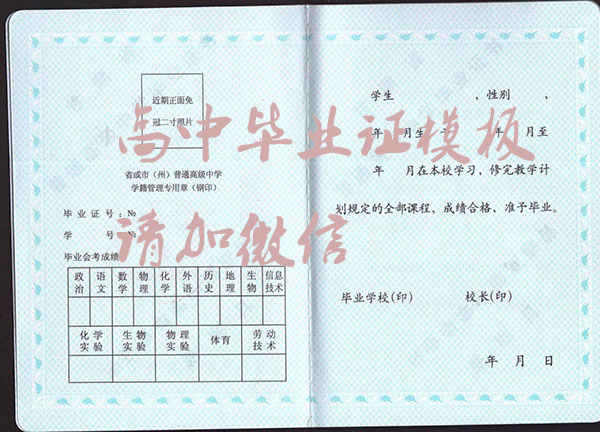 近期正面免
冠二寸照片
省咸市（州）普通高级中学
学籍管理专用章（钢印）
毕业证号：№
学 号：№
毕业会考成绩
政治 语文 数学 物理 化学 外语 历史 地理 生物 信息技术
化学实验 生物实验 物理实验 体育 劳动技术
学生 ，性别 ，
年 月生 于 年 月至
年 月在本校学习，修完教学计
划规定的全部课程，成绩合格，准予毕业。
毕业学校（印） 校长（印）
年 月 日
高中毕业证模板
请加微信